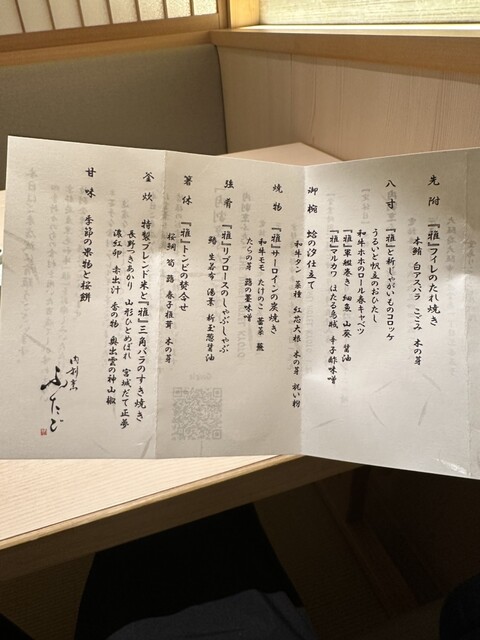 先附 『雅』フィレのたれ焼き
本鮪 白アスパラ こごみ 木の芽
八寸 『雅』と新じゃがいものコロッケ
うるいと帆立のおひたし
和牛ホホのロール春キャベツ
『雅』軍艦巻き 細魚 山葵 醤油
『雅』マルカワ ほたる烏賊 辛子酢味噌
御椀 蛤の汐仕立て
和牛タン 菜種 紅芯大根 木の芽 祝い粉
焼物 『雅』サーロインの炭焼き
和牛モモ たけのこ 若菜 蕪
たらの芽 蕗の薹味噌
強肴 『雅』リブロースのしゃぶしゃぶ
鰆 生若布 湯葉 新玉葱醤油
箸休 『雅』トンビの賛合せ
桜鯛 筍 蕗 春子椎茸 木の芽
釜炊 特製ブレンド米と『雅』三角バラのすき焼き
長野ゆきあかり 山形ひとめぼれ 宮城だて正夢
濃紅卵 赤出汁 香の物 奥出雲の神山椒
甘味 季節の果物と桜餅
肉割烹
ふたご